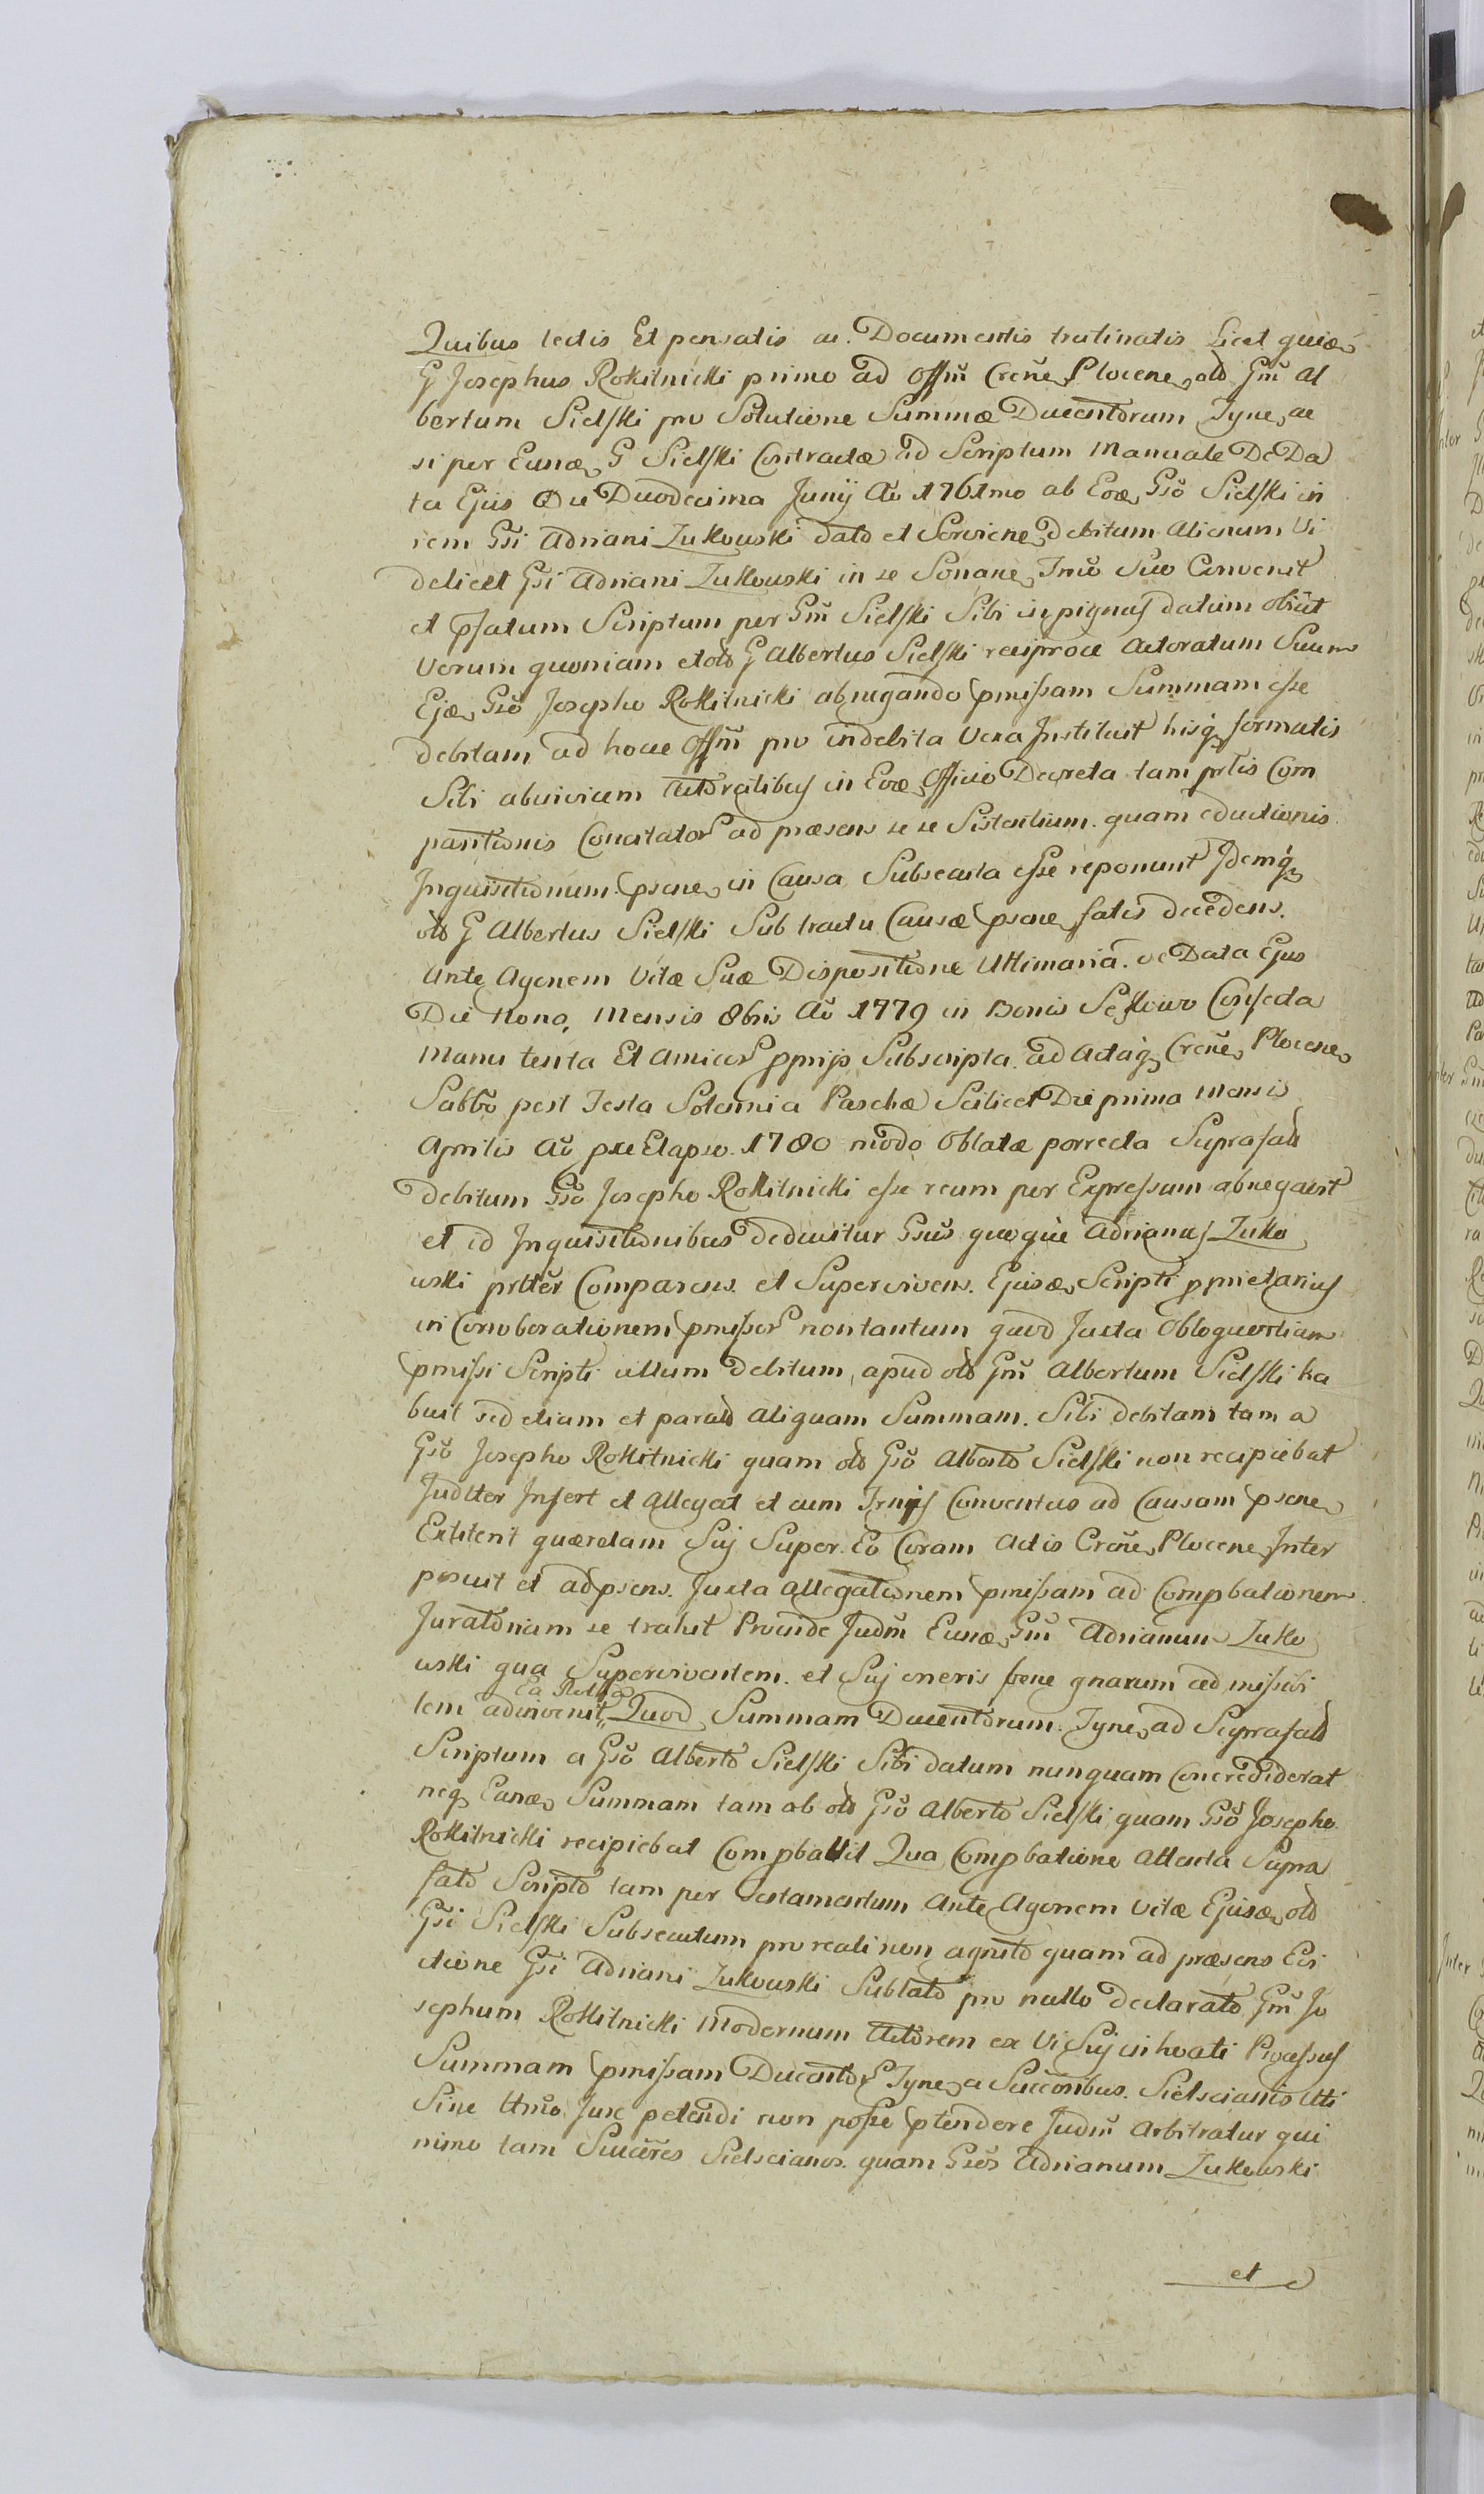 Quibus lectis Et pensatis ac Documentis trutinatis Licet quidem
G Josephus Rokitnicki primo ad Offm Crene Plocene olo Gm Al
bertum Sielski pro Solutione Summæ Ducentorum Tyne ac
si per Eunæ G Sielski Contractæ ad Scriptum Manuale De Da
ta Ejus Die Duodecima Junij Ao 1761mo ab Eoæ Gso Sielski in
rem Gsi Adriani Zukowski dato et Serviene debitum Alienum Vi
delicet Gsi Adriani Zukowski in se Sonane Tmo Suo Convenit
et pfatum Scriptum per Gm Sielski Sibi in pignus datum obiit
Verum quoniam et olo G Albertus Sielski reciproce Actoratum Suum
Ejæ Gso Josepho Rokitnicki abnegando pmissam Summam esse
debitam ad hocce Offm pro indebita Vexa Instituit hisq formatis
Sibi abinvicem Actoratibus in Eoæ Officio Decreta tam prlis Com
paritionis Concitator ad præsens se se Sistentium quam eductionis
Inquisitionum psene in Causa Subsecuta esse reponunt Idemq
olo G Albertus Sielski Sub tractu Causæ psene fatis decedens
Ante Agonem Vitæ Suæ Dispositione Ultimaria de Data Ejus
Die Nona Mensis 8bris Ao 1779 in Bonis Confecta
Manu tenta Et Amicor pprijs Subscripta ad Actaq Crene Plocene
Sabbo post Festa Solemnia Paschæ Scilicet Die prima Mensis
Aprilis Ao præ Elapso 1780 modo Oblatæ porrecta Suprafato
debitum Gso Josepho Rokitnicki esse reum per Expressum abnegavit
et id Inquisitionibus deducitur Gsus quoque Adrianus Zuko
wski prlter Comparens et Supervivens Ejusæ Scripti pprietarius
in Corroborationem pmissor non tantum quod Juxta Obloquentiam
pmissi Scripti ullum debitum apud olo Gm Albertum Sielski ha
buit sed etiam et parato aliquam Summam Sibi debitam tam a
Gso Josepho Rokitnicki quam olo Gso Alberto Sielski non recipiebat
Judtter Infert et Allegat et cum Trnijs Conventus ad Causam psene
Extiterit quærelam Sui Super Eo Coram Actis Crene Plocene Inter
posuit et ad psens Juxta Allegationem pmissam ad Compbationem
Juratoriam se trahit Proinde Judm Eunæ Gm Adrianum Zuko
wski qua Supervivontem et Suj oneris bene gnarum ad
tem adinvenit Ea Rotha Quod Summam Ducentorum Tyne ad Suprafato
Scriptum a Gso Alberto Sielski Sibi datum nunquam Concrediderat
neq Eanæ Summam tam ab olo Gso Alberto Sielski quam Gso Josepho
Rokitnicki recipiebat Compbabit Qua Compbatione Attenta Supra
fato Scripto tam per Testamentum Ante Agonem Vitæ Ejusæ olo
Gsi Sielski Subsecutum pro reali non agnito quam ad præsens Evi
ctione Gsi Adriani Zukowski Sublato pro nullo declarato Gm Jo
sephum Rokitnicki Modernum Actorem ex Vi Suj inhoati Processus
Summam pmissam Ducentor Tyne a Succoribus Sielscianis Uti
Sine Ullo Jure petendi non posse ptendere Judm Arbitratur qui
nimo tam Succores Sielscianos quam Gsos Adrianum Zukowski
et